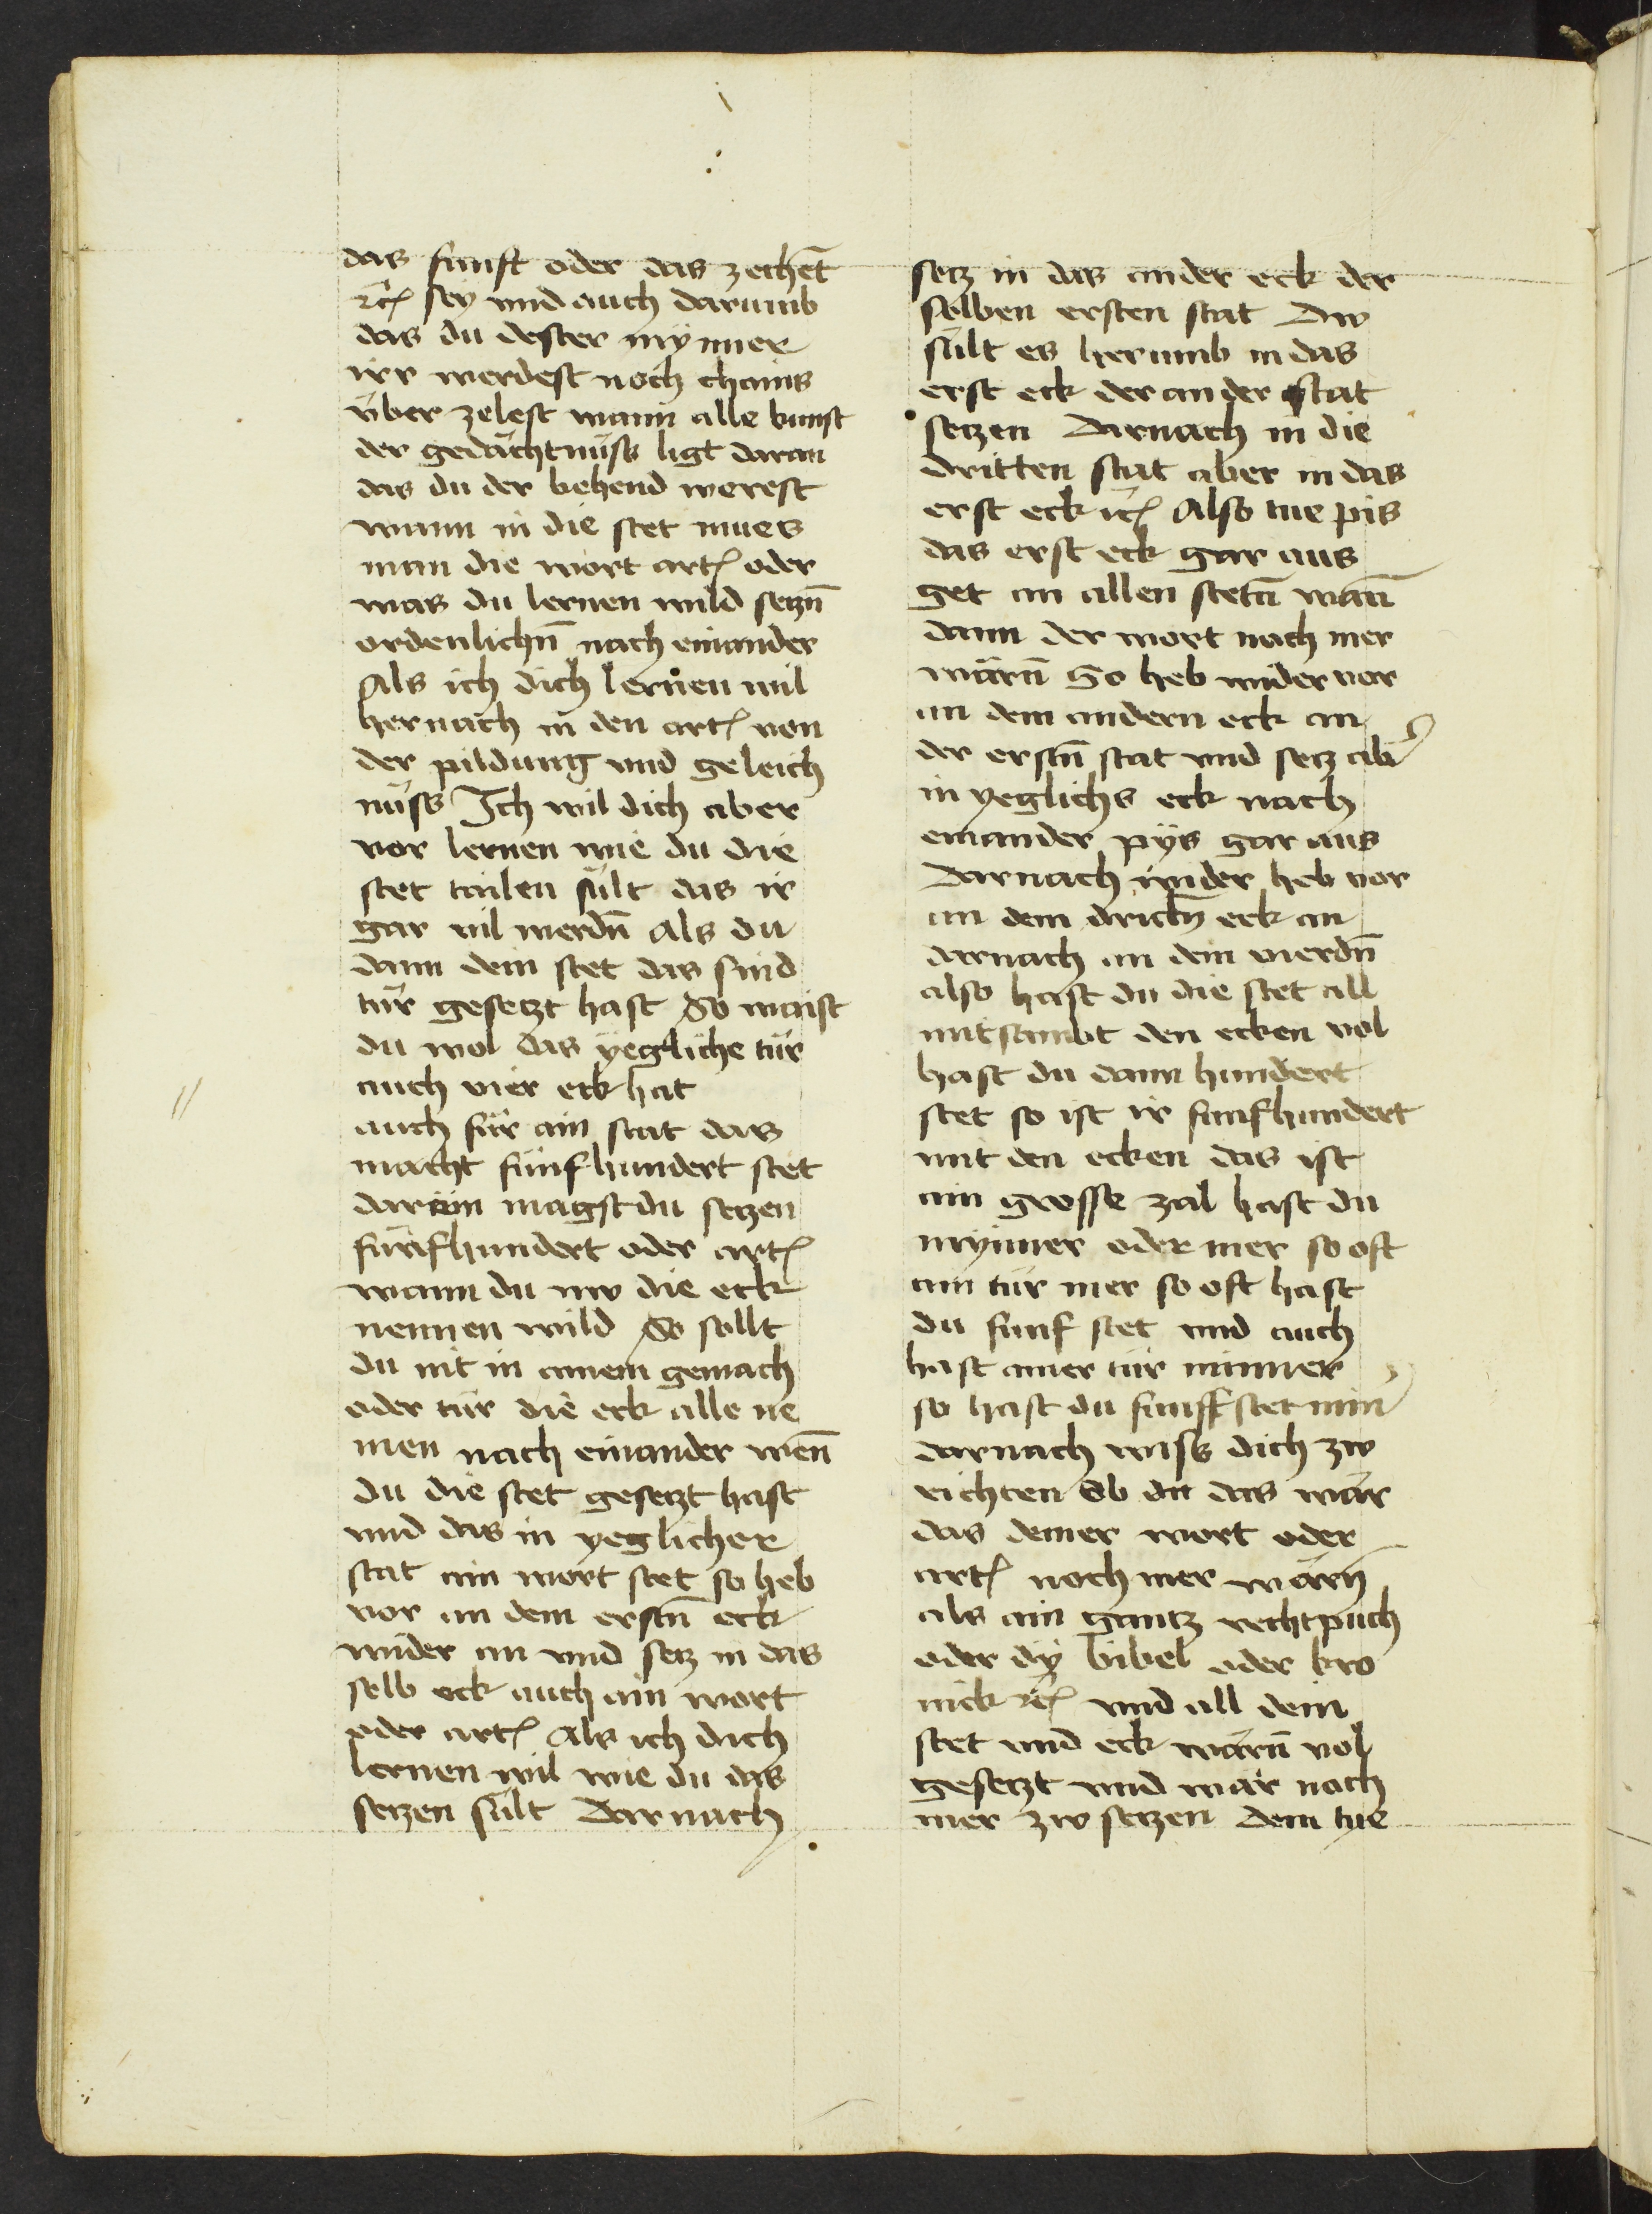 das funft oder das zechet̄
ꝛc̄ sey vnd auch darumb
das du dester mynner
irr werdest noch chains
v̈ber zelest wann alle kunst
der gedächtnüss ligt daran
das du der behend werest
wann in die stet mues
man die wort artꝭ oder
was du lernen wild setzn̄
ordenlichn̄ nach einander
Als ich dich lernen wil
hernach in den artꝭ von
der pildung vnd geleich
nüss Ich wil dich aber
vor lernen wie du die
stet tailen sült das ir
gar vil werdn̄ Als du
dann dein stet das sind
tür gesetzt hast So waist
du wol das yegliche tür
auch vier eck hat
auch für ain stat das
macht fünfhundert stet
darinn magst du setzen
fünfhundert oder artꝭ
wann du nw die eck
nennen wild So sollt
du nit in ainem gemach
oder tür die eck alle ne
men nach einander wen̄
du die stet gesetzt hast
vnd das in yeglicher
stat ain wort stet so heb
vor an dem erstn̄ eck
wider an vnd setz in das
selb eck auch ain wort
oder artꝭ Als ich dich
lernen wil wie du das
setzen sült Darnach
setz in das ander eck der
selben ersten stat Dw
sült es herumb in das
erst eck der ander stat
setzen Darnach in die
dritten stat aber in das
erst eck ꝛc̄ Also tue pis
das erst eck gar aus
get an allen stetn̄ wan̄
dann der wort noch mer
wärn̄ So heb wider vor
an dem andern eck an
der erstn̄ stat vnd setz ab̾
in yeglichs eck nach
einander pÿs gar aus
Darnach wider heb vor
an dem drittn̄ eck an
darnach an dem vierdn̄
also hast du die stet all
mitsambt den ecken vol
hast du dann hundert
stet so ist ir funfhundert
mit den ecken das ist
ain grosse zal hast du
mynner oder mer so oft
ain tür mer so oft hast
du funf stet vnd auch
hast ainer tür minner
so hast du funff stet min̾
darnach wiss dich zw
richten Ob du das wär
das deiner wort oder
artꝭ noch mer wärn̄
als ain gantz rechtpuch
oder dÿ bibel oder kro
nick ꝛc̄ vnd all dein
stet vnd eck wärn̄ vol
gesetzt vnd wär noch
mer zw setzen dem tue